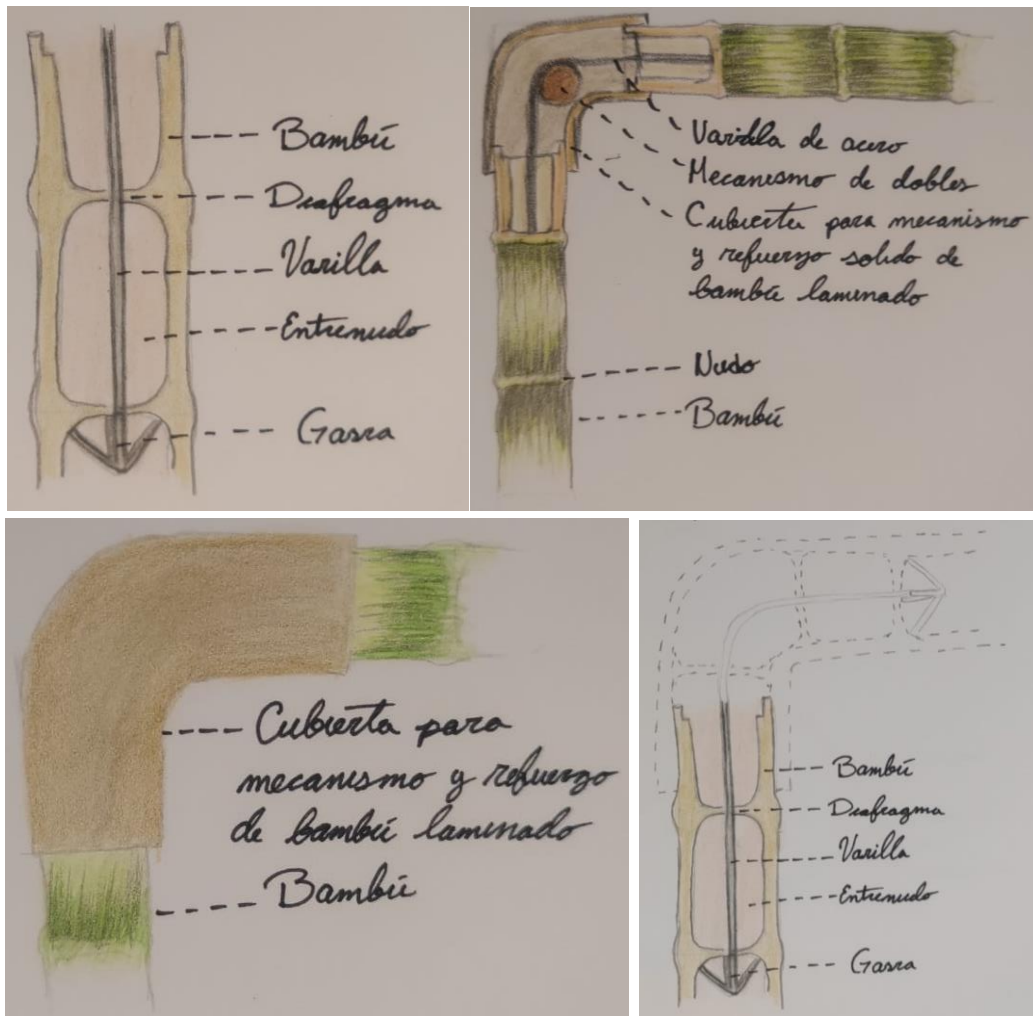 Bambú
Diafragma
Varilla
Entrenudo
Garra
Varilla de acero
Mecanismo de dobles
Cubierta para mecanismo
y refuerzo solido de
bambú laminado
Nudo
Bambú
Cubierta para
mecanismo y refuerzo
de bambú laminado
Bambú
Bambú
Diafragma
Varilla
Entrenudo
Garra